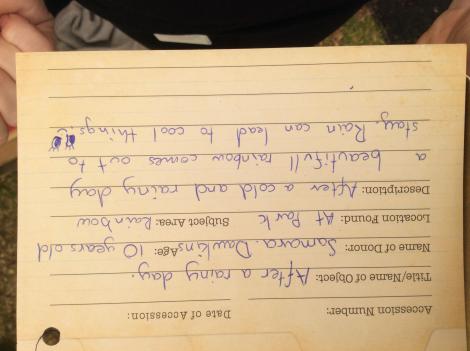 Accession Number: Date of Accession:
Title/Name of Object: After a rainy day.
Name of Donor: Samara. Dawkins Age: 10 years old
Location Found: At Park Subject Area: Rainbow
Description: After a cold and rainy day
a beautifull rainbow comes out to
stay. Rain can lead to cool things!